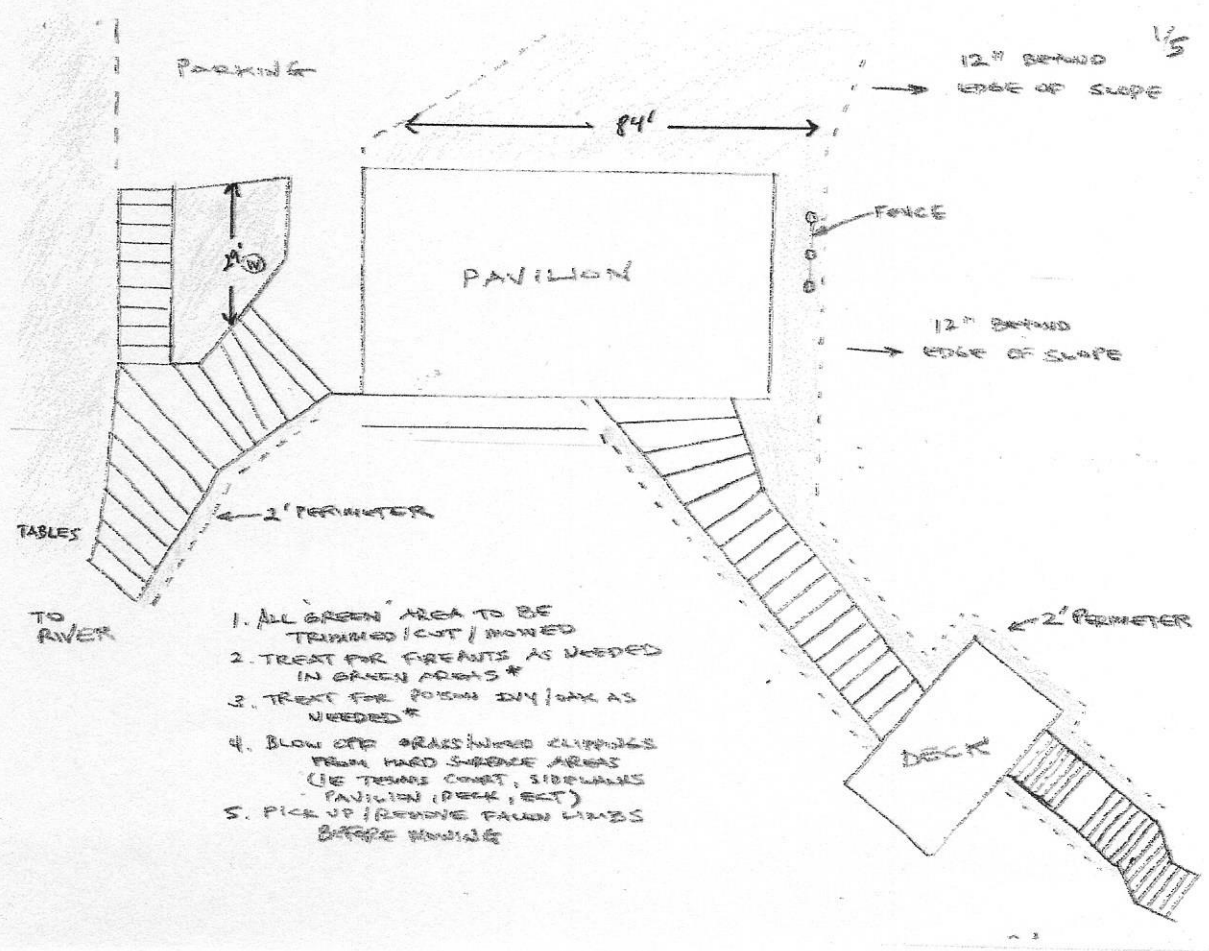 1/5
PARKING
12" BEYOND
EDGE OF SLOPE
84'
FENCE
29' W
PAVILION
12" BEYOND
EDGE OF SLOPE
2' PERIMETER
TABLES
TO
RIVER
2' PERIMETER
DECK
1. ALL "GREEN" AREA TO BE
TRIMMED/CUT/MOWED
2. TREAT FOR FIREANTS AS NEEDED
IN GREEN AREAS*
3. TREAT FOR POISON IVY/OAK AS
NEEDED*
4. BLOW OFF GRASS/WEED CLIPPINGS
FROM HARD SURFACE AREAS
(IE TENNIS COURT, SIDEWALKS
PAVILION, DECK, ECT)
5. PICK UP/REMOVE FALLEN LIMBS
BEFORE MOWING